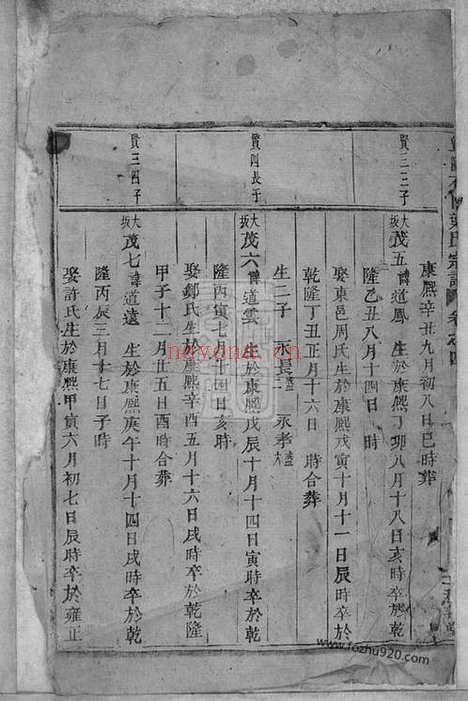 氏宗譜 卷之四
賢二三子
康熙辛丑九月初八日巳時葬
大坂茂五諱道鳳 生於康熙丁卯八月十八日亥時卒於乾
隆乙丑八月十四日 時
娶東邑周氏生於康熙戊寅十月十一日辰時卒於
乾隆丁丑正月十六日 時合葬
生二子 永長 永孝
賢四長子
大坂茂六諱道雲 生於康熙戊辰十月十四日寅時卒於乾
隆丙寅七月十四日亥時
娶鄭氏生於康熙辛酉五月十六日戌時卒於乾隆
甲子十二月廿五日酉時合葬
賢三四子
大坂茂七諱道遠 生於康熙庚午十月十四日戌時卒於乾
隆丙辰三月十七日子時
娶許氏生於康熙甲寅六月初七日辰時卒於雍正
nayona.cn
www.fozhu920.com